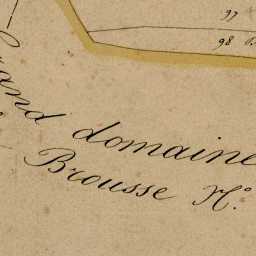 97
98
Grand domaine
Brousse No.